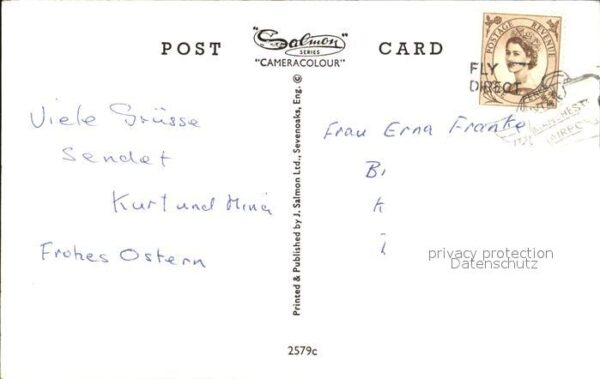 POST CARD
"Salmon"
SERIES
"CAMERACOLOUR"
POSTAGE REVENUE
FLY
DIRECT
Viele Grüsse
Sendet
Kurt und Mina
Frohes Ostern
Printed & Published by J. Salmon Ltd., Sevenoaks, Eng. ©
Frau Erna Franke
privacy protection
Datenschutz
2579c